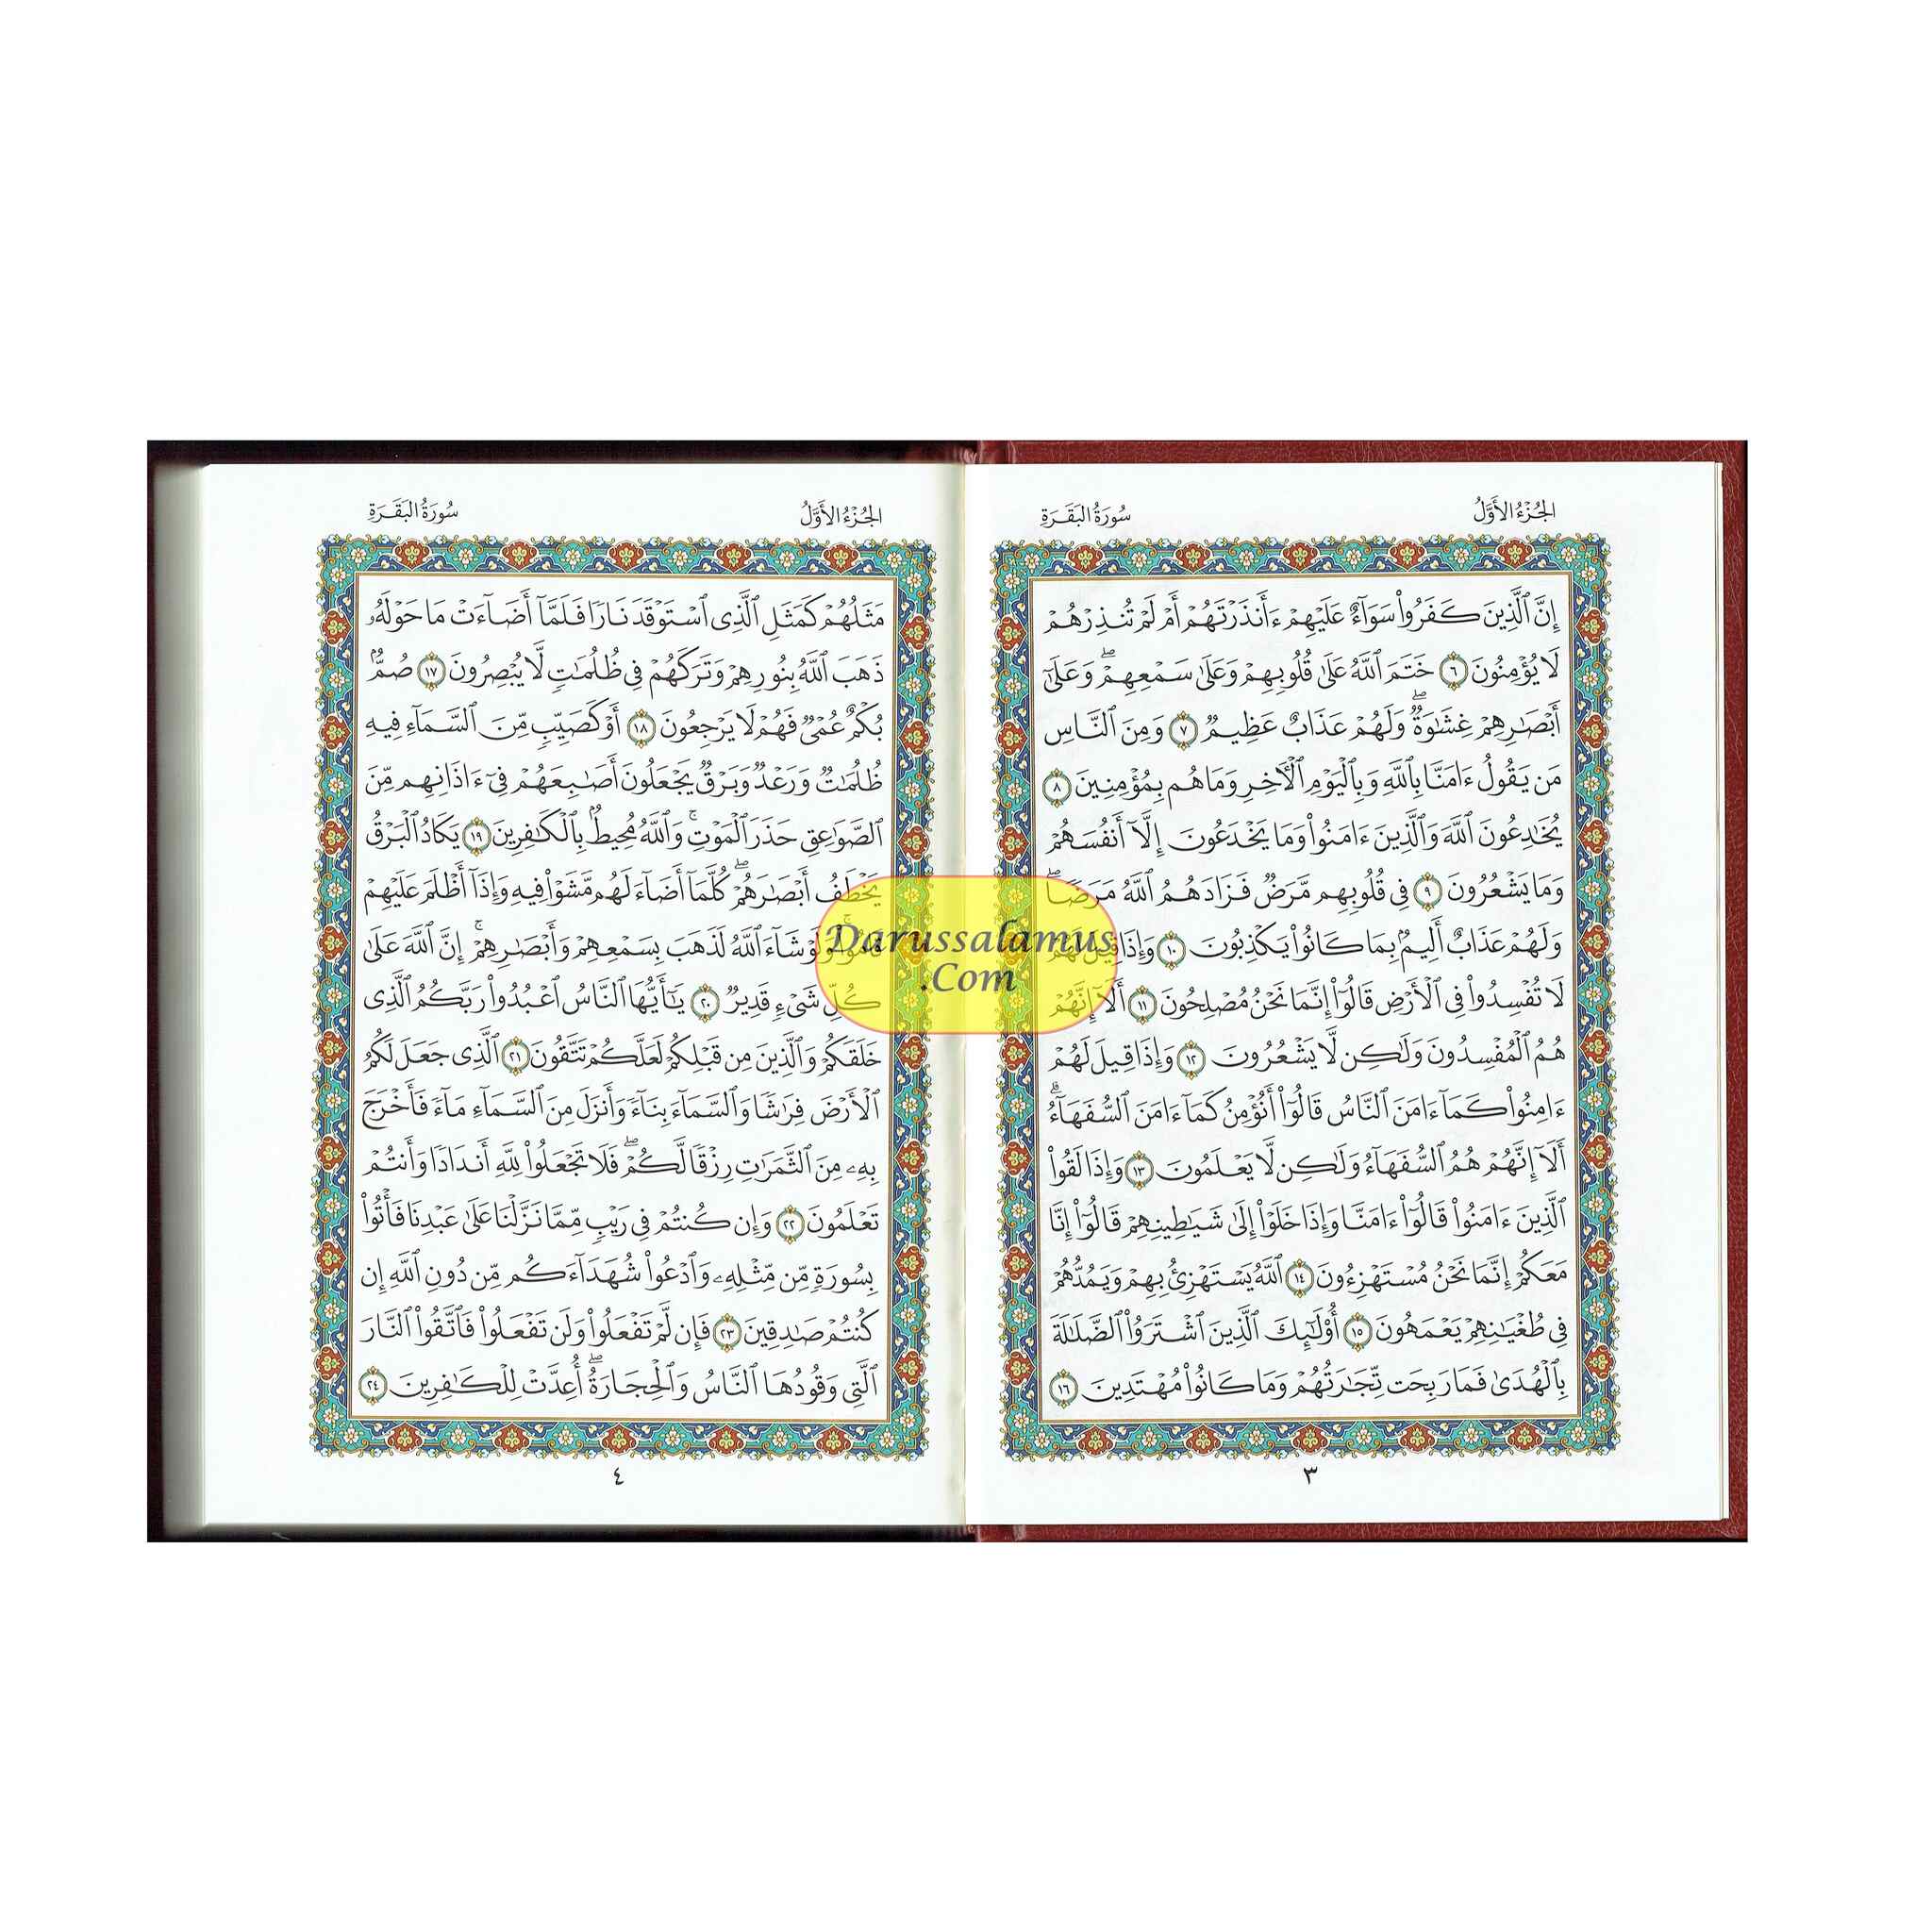 الجُزْءُ الأَوَّلُ
سُورَةُ البَقَرَةِ
إِنَّ ٱلَّذِينَ كَفَرُوا۟ سَوَآءٌ عَلَيْهِمْ ءَأَنذَرْتَهُمْ أَمْ لَمْ تُنذِرْهُمْ
لَا يُؤْمِنُونَ ٦ خَتَمَ ٱللَّهُ عَلَىٰ قُلُوبِهِمْ وَعَلَىٰ سَمْعِهِمْ ۖ وَعَلَىٰٓ
أَبْصَٰرِهِمْ غِشَٰوَةٌ ۖ وَلَهُمْ عَذَابٌ عَظِيمٌ ٧ وَمِنَ ٱلنَّاسِ
مَن يَقُولُ ءَامَنَّا بِٱللَّهِ وَبِٱلْيَوْمِ ٱلْءَاخِرِ وَمَا هُم بِمُؤْمِنِينَ ٨
يُخَٰدِعُونَ ٱللَّهَ وَٱلَّذِينَ ءَامَنُوا۟ وَمَا يَخْدَعُونَ إِلَّآ أَنفُسَهُمْ
وَمَا يَشْعُرُونَ ٩ فِى قُلُوبِهِم مَّرَضٌ فَزَادَهُمُ ٱللَّهُ مَرَضًا ۖ
وَلَهُمْ عَذَابٌ أَلِيمٌۢ بِمَا كَانُوا۟ يَكْذِبُونَ ١٠ وَإِذَا قِيلَ لَهُمْ
لَا تُفْسِدُوا۟ فِى ٱلْأَرْضِ قَالُوٓا۟ إِنَّمَا نَحْنُ مُصْلِحُونَ ١١ أَلَآ إِنَّهُمْ
هُمُ ٱلْمُفْسِدُونَ وَلَٰكِن لَّا يَشْعُرُونَ ١٢ وَإِذَا قِيلَ لَهُمْ
ءَامِنُوا۟ كَمَآ ءَامَنَ ٱلنَّاسُ قَالُوٓا۟ أَنُؤْمِنُ كَمَآ ءَامَنَ ٱلسُّفَهَآءُ ۗ
أَلَآ إِنَّهُمْ هُمُ ٱلسُّفَهَآءُ وَلَٰكِن لَّا يَعْلَمُونَ ١٣ وَإِذَا لَقُوا۟
ٱلَّذِينَ ءَامَنُوا۟ قَالُوٓا۟ ءَامَنَّا وَإِذَا خَلَوْا۟ إِلَىٰ شَيَٰطِينِهِمْ قَالُوٓا۟ إِنَّا
مَعَكُمْ إِنَّمَا نَحْنُ مُسْتَهْزِءُونَ ١٤ ٱللَّهُ يَسْتَهْزِئُ بِهِمْ وَيَمُدُّهُمْ
فِى طُغْيَٰنِهِمْ يَعْمَهُونَ ١٥ أُو۟لَٰٓئِكَ ٱلَّذِينَ ٱشْتَرَوُا۟ ٱلضَّلَٰلَةَ
بِٱلْهُدَىٰ فَمَا رَبِحَت تِّجَٰرَتُهُمْ وَمَا كَانُوا۟ مُهْتَدِينَ ١٦
٣
الجُزْءُ الأَوَّلُ
سُورَةُ البَقَرَةِ
مَثَلُهُمْ كَمَثَلِ ٱلَّذِى ٱسْتَوْقَدَ نَارًا فَلَمَّآ أَضَآءَتْ مَا حَوْلَهُۥ
ذَهَبَ ٱللَّهُ بِنُورِهِمْ وَتَرَكَهُمْ فِى ظُلُمَٰتٍ لَّا يُبْصِرُونَ ١٧ صُمٌّۢ
بُكْمٌ عُمْىٌ فَهُمْ لَا يَرْجِعُونَ ١٨ أَوْ كَصَيِّبٍ مِّنَ ٱلسَّمَآءِ فِيهِ
ظُلُمَٰتٌ وَرَعْدٌ وَبَرْقٌ يَجْعَلُونَ أَصَٰبِعَهُمْ فِىٓ ءَاذَانِهِم مِّنَ
ٱلصَّوَٰعِقِ حَذَرَ ٱلْمَوْتِ ۚ وَٱللَّهُ مُحِيطٌۢ بِٱلْكَٰفِرِينَ ١٩ يَكَادُ ٱلْبَرْقُ
يَخْطَفُ أَبْصَٰرَهُمْ ۖ كُلَّمَآ أَضَآءَ لَهُم مَّشَوْا۟ فِيهِ وَإِذَآ أَظْلَمَ عَلَيْهِمْ
قَامُوا۟ ۚ وَلَوْ شَآءَ ٱللَّهُ لَذَهَبَ بِسَمْعِهِمْ وَأَبْصَٰرِهِمْ ۚ إِنَّ ٱللَّهَ عَلَىٰ
كُلِّ شَىْءٍ قَدِيرٌ ٢٠ يَٰٓأَيُّهَا ٱلنَّاسُ ٱعْبُدُوا۟ رَبَّكُمُ ٱلَّذِى
خَلَقَكُمْ وَٱلَّذِينَ مِن قَبْلِكُمْ لَعَلَّكُمْ تَتَّقُونَ ٢١ ٱلَّذِى جَعَلَ لَكُمُ
ٱلْأَرْضَ فِرَٰشًا وَٱلسَّمَآءَ بِنَآءً وَأَنزَلَ مِنَ ٱلسَّمَآءِ مَآءً فَأَخْرَجَ
بِهِۦ مِنَ ٱلثَّمَرَٰتِ رِزْقًا لَّكُمْ ۖ فَلَا تَجْعَلُوا۟ لِلَّهِ أَندَادًا وَأَنتُمْ
تَعْلَمُونَ ٢٢ وَإِن كُنتُمْ فِى رَيْبٍ مِّمَّا نَزَّلْنَا عَلَىٰ عَبْدِنَا فَأْتُوا۟
بِسُورَةٍ مِّن مِّثْلِهِۦ وَٱدْعُوا۟ شُهَدَآءَكُم مِّن دُونِ ٱللَّهِ إِن
كُنتُمْ صَٰدِقِينَ ٢٣ فَإِن لَّمْ تَفْعَلُوا۟ وَلَن تَفْعَلُوا۟ فَٱتَّقُوا۟ ٱلنَّارَ
ٱلَّتِى وَقُودُهَا ٱلنَّاسُ وَٱلْحِجَارَةُ ۖ أُعِدَّتْ لِلْكَٰفِرِينَ ٢٤
٤
Darussalamus
.Com